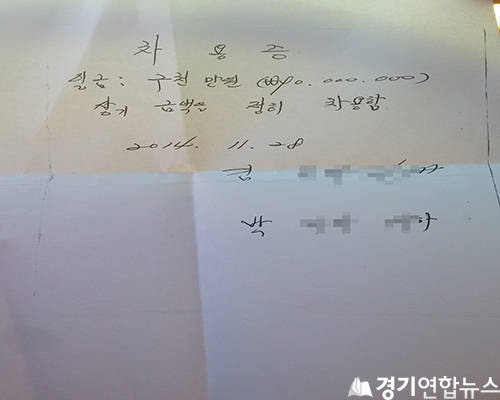 차 용 증
일금: 구천 만원 (₩90.000.000)
상기 금액을 정히 차용함
2014. 11. 28
김
박
경기연합뉴스